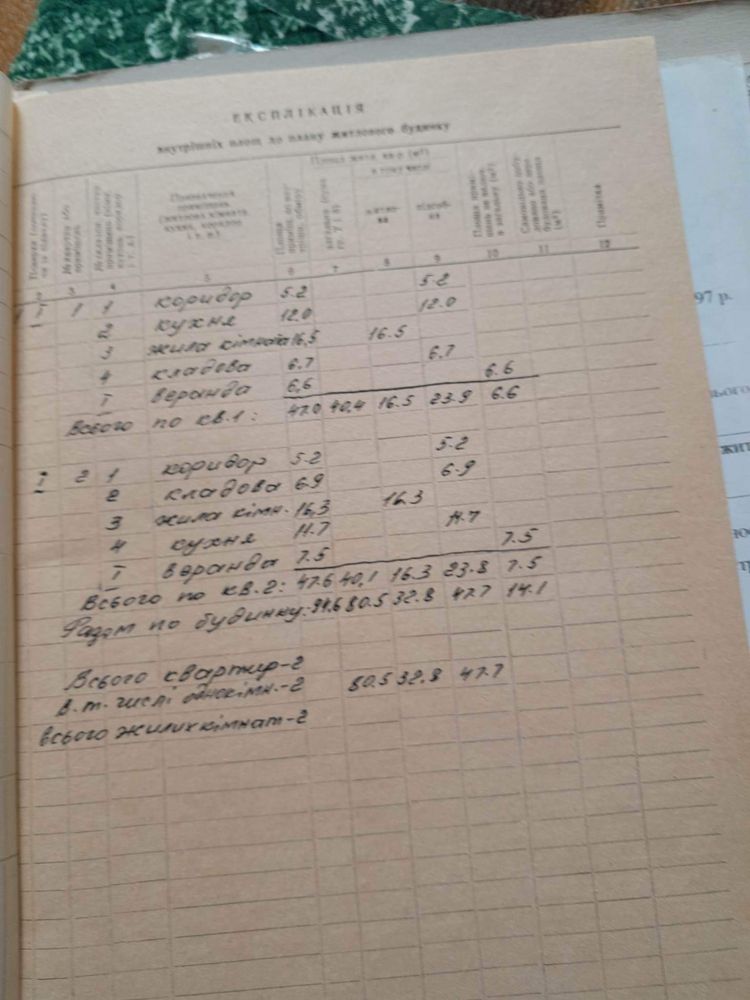 ЕКСПЛІКАЦІЯ
внутрішніх площ до плану житлового будинку
Площа житл. кв-р (м²)
в тому числі
Призначення приміщень (житлова кімната, кухня, коридор і т. п.)
3 4 5 6 7 8 9 10 11 12
І 1 1 коридор 5.2 5.2
2 кухня 12.0 12.0
3 жила кімната 16,5 16.5
4 кладова 6.7 6.7
І веранда 6,6 6.6
Всього по кв.1: 47.0 40,4 16.5 23.9 6.6
І 2 1 коридор 5.2 5.2
2 кладова 6.9 6.9
3 жила кімн. 16,3 16.3
4 кухня 11.7 11.7
І веранда 7.5 7.5
Всього по кв.2: 47.6 40,1 16.3 23.8 7.5
Разом по будинку: 94.6 80.5 32.8 47.7 14.1
Всього квартир-2
в.т. числі однокімн.-2 80.5 32.8 47.7
всього жилих кімнат-2
97 р.